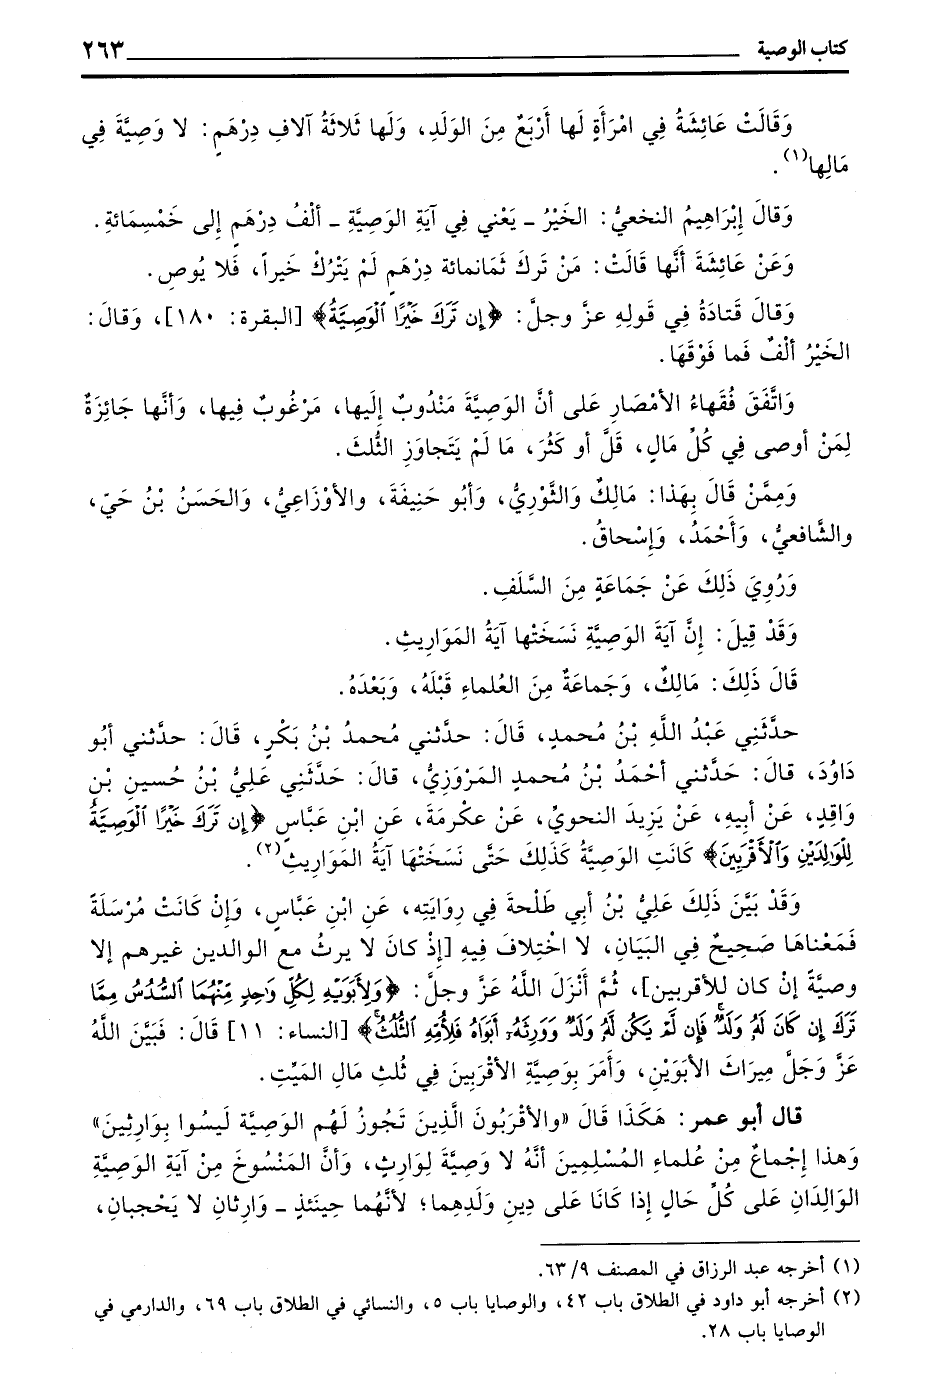 كتاب الوصية ٢٦٣
وَقَالَتْ عَائِشَةُ فِي امْرَأَةٍ لَها أَرْبَعٌ مِنَ الوَلَدِ، وَلَها ثَلاثَةُ آلافِ دِرْهَمٍ: لا وَصِيَّةَ فِي
مَالِها(١).
وَقالَ إبْرَاهِيمُ النخعيُّ: الخَيْرُ ـ يَعْني فِي آيَةِ الوَصِيَّةِ ـ ألْفُ دِرْهَمٍ إلى خَمْسِمَائةِ.
وَعَنْ عَائِشَةَ أنَّها قَالَتْ: مَنْ تَركَ ثَمَانمائة دِرْهَمٍ لَمْ يَتْرُكْ خَيراً، فَلا يُوصِ.
وَقَالَ قَتادَةُ فِي قَولِهِ عزَّ وجلَّ: ﴿إِن تَرَكَ خَيْرًا ٱلْوَصِيَّةُ﴾ [البقرة: ١٨٠]، وَقالَ:
الخَيْرُ ألْفٌ فَما فَوْقَهَا.
وَاتَّفَقَ فُقَهاءُ الأمْصَارِ عَلى أنَّ الوَصِيَّةَ مَنْدُوبٌ إلَيها، مَرْغُوبٌ فِيها، وَأنَّها جَائِزَةٌ
لِمَنْ أوصى فِي كُلِّ مَالٍ، قَلَّ أو كَثُرَ، مَا لَمْ يَتَجاوَزِ الثُّلثَ.
وَمِمَّنْ قَالَ بِهَذا: مَالِكٌ وَالثَّوْرِيُّ، وَأبُو حَنِيفَةَ، والأوْزَاعِيُّ، وَالحَسَنُ بْنُ حَيّ،
والشَّافعيُّ، وَأَحْمَدُ، وَإسْحاقُ.
وَرُوِيَ ذَلِكَ عَنْ جَمَاعَةٍ مِنَ السَّلَفِ.
وَقَدْ قِيلَ: إنَّ آيَةَ الوَصِيَّةِ نَسَخَتْها آيَةُ المَوَارِيثِ.
قَالَ ذَلِكَ: مَالِكٌ، وَجَماعَةٌ مِنَ العُلماءِ قَبْلَهُ، وَبَعْدَهُ.
حدَّثَنِي عَبْدُ اللَّهِ بْنُ مُحمدٍ، قَالَ: حدَّثني مُحمدُ بْنُ بَكْرٍ، قَالَ: حدَّثني أبُو
دَاوُدَ، قالَ: حَدَّثني أحْمَدُ بْنُ مُحمدٍ المَرْوَزِيُّ، قالَ: حَدَّثَنِي عَلِيُّ بْنُ حُسينِ بْنِ
وَاقِدٍ، عَنْ أبيهِ، عَنْ يَزِيدَ النحويِّ، عَنْ عكْرمَةَ، عَنِ ابْنِ عَبَّاسٍ ﴿إِن تَرَكَ خَيْرًا ٱلْوَصِيَّةُ
لِلْوَالِدَيْنِ وَٱلْأَقْرَبِينَ﴾ كَانَتِ الوَصِيَّةُ كَذَلِكَ حَتَّى نَسَخَتْهَا آيَةُ المَوَارِيثِ(٢).
وَقَدْ بَيَّنَ ذَلِكَ عَلِيُّ بْنُ أبي طَلْحةَ فِي رِوَايَتِهِ، عَنِ ابْنِ عَبَّاسٍ، وَإنْ كَانَتْ مُرْسَلَةً
فَمَعْناهَا صَحِيحٌ فِي البَيَانِ، لا اخْتِلافَ فِيهِ [إذْ كانَ لا يرثُ مع الوالدين غيرهم إلا
وصيَّةً إنْ كان للأقربين]، ثُمَّ أَنْزَلَ اللَّهُ عَزَّ وجلَّ: ﴿وَلِأَبَوَيْهِ لِكُلِّ وَٰحِدٍ مِّنْهُمَا ٱلسُّدُسُ مِمَّا
تَرَكَ إِن كَانَ لَهُۥ وَلَدٌۚ فَإِن لَّمْ يَكُن لَّهُۥ وَلَدٌ وَوَرِثَهُۥٓ أَبَوَاهُ فَلِأُمِّهِ ٱلثُّلُثُۚ﴾ [النساء: ١١] قَالَ: فَبَيَّنَ اللَّهُ
عَزَّ وَجَلَّ مِيرَاثَ الأبَوَيْنِ، وَأمَرَ بِوَصِيَّةِ الأقْرَبِينَ فِي ثُلثِ مَالِ المَيِّتِ.
قال أبو عمر: هَكَذَا قَالَ «والأقْرَبُونَ الَّذِينَ تَجُوزُ لَهُم الوَصِيَّة لَيسُوا بِوَارِثِينَ»
وَهذا إجْماعٌ مِنْ عُلماءِ المُسْلِمِينَ أنَّهُ لا وَصِيَّةَ لِوَارِثٍ، وَأنَّ المَنْسُوخَ مِنْ آيَةِ الوَصِيَّةِ
الوَالِدَانِ عَلى كُلِّ حَالٍ إذَا كَانَا عَلى دِينِ وَلَدِهِما؛ لأنَّهُما حِينَئذٍ ـ وَارِثانِ لا يَحْجبانِ،
(١) أخرجه عبد الرزاق في المصنف ٩/ ٦٣.
(٢) أخرجه أبو داود في الطلاق باب ٤٢، والوصايا باب ٥، والنسائي في الطلاق باب ٦٩، والدارمي في
الوصايا باب ٢٨.